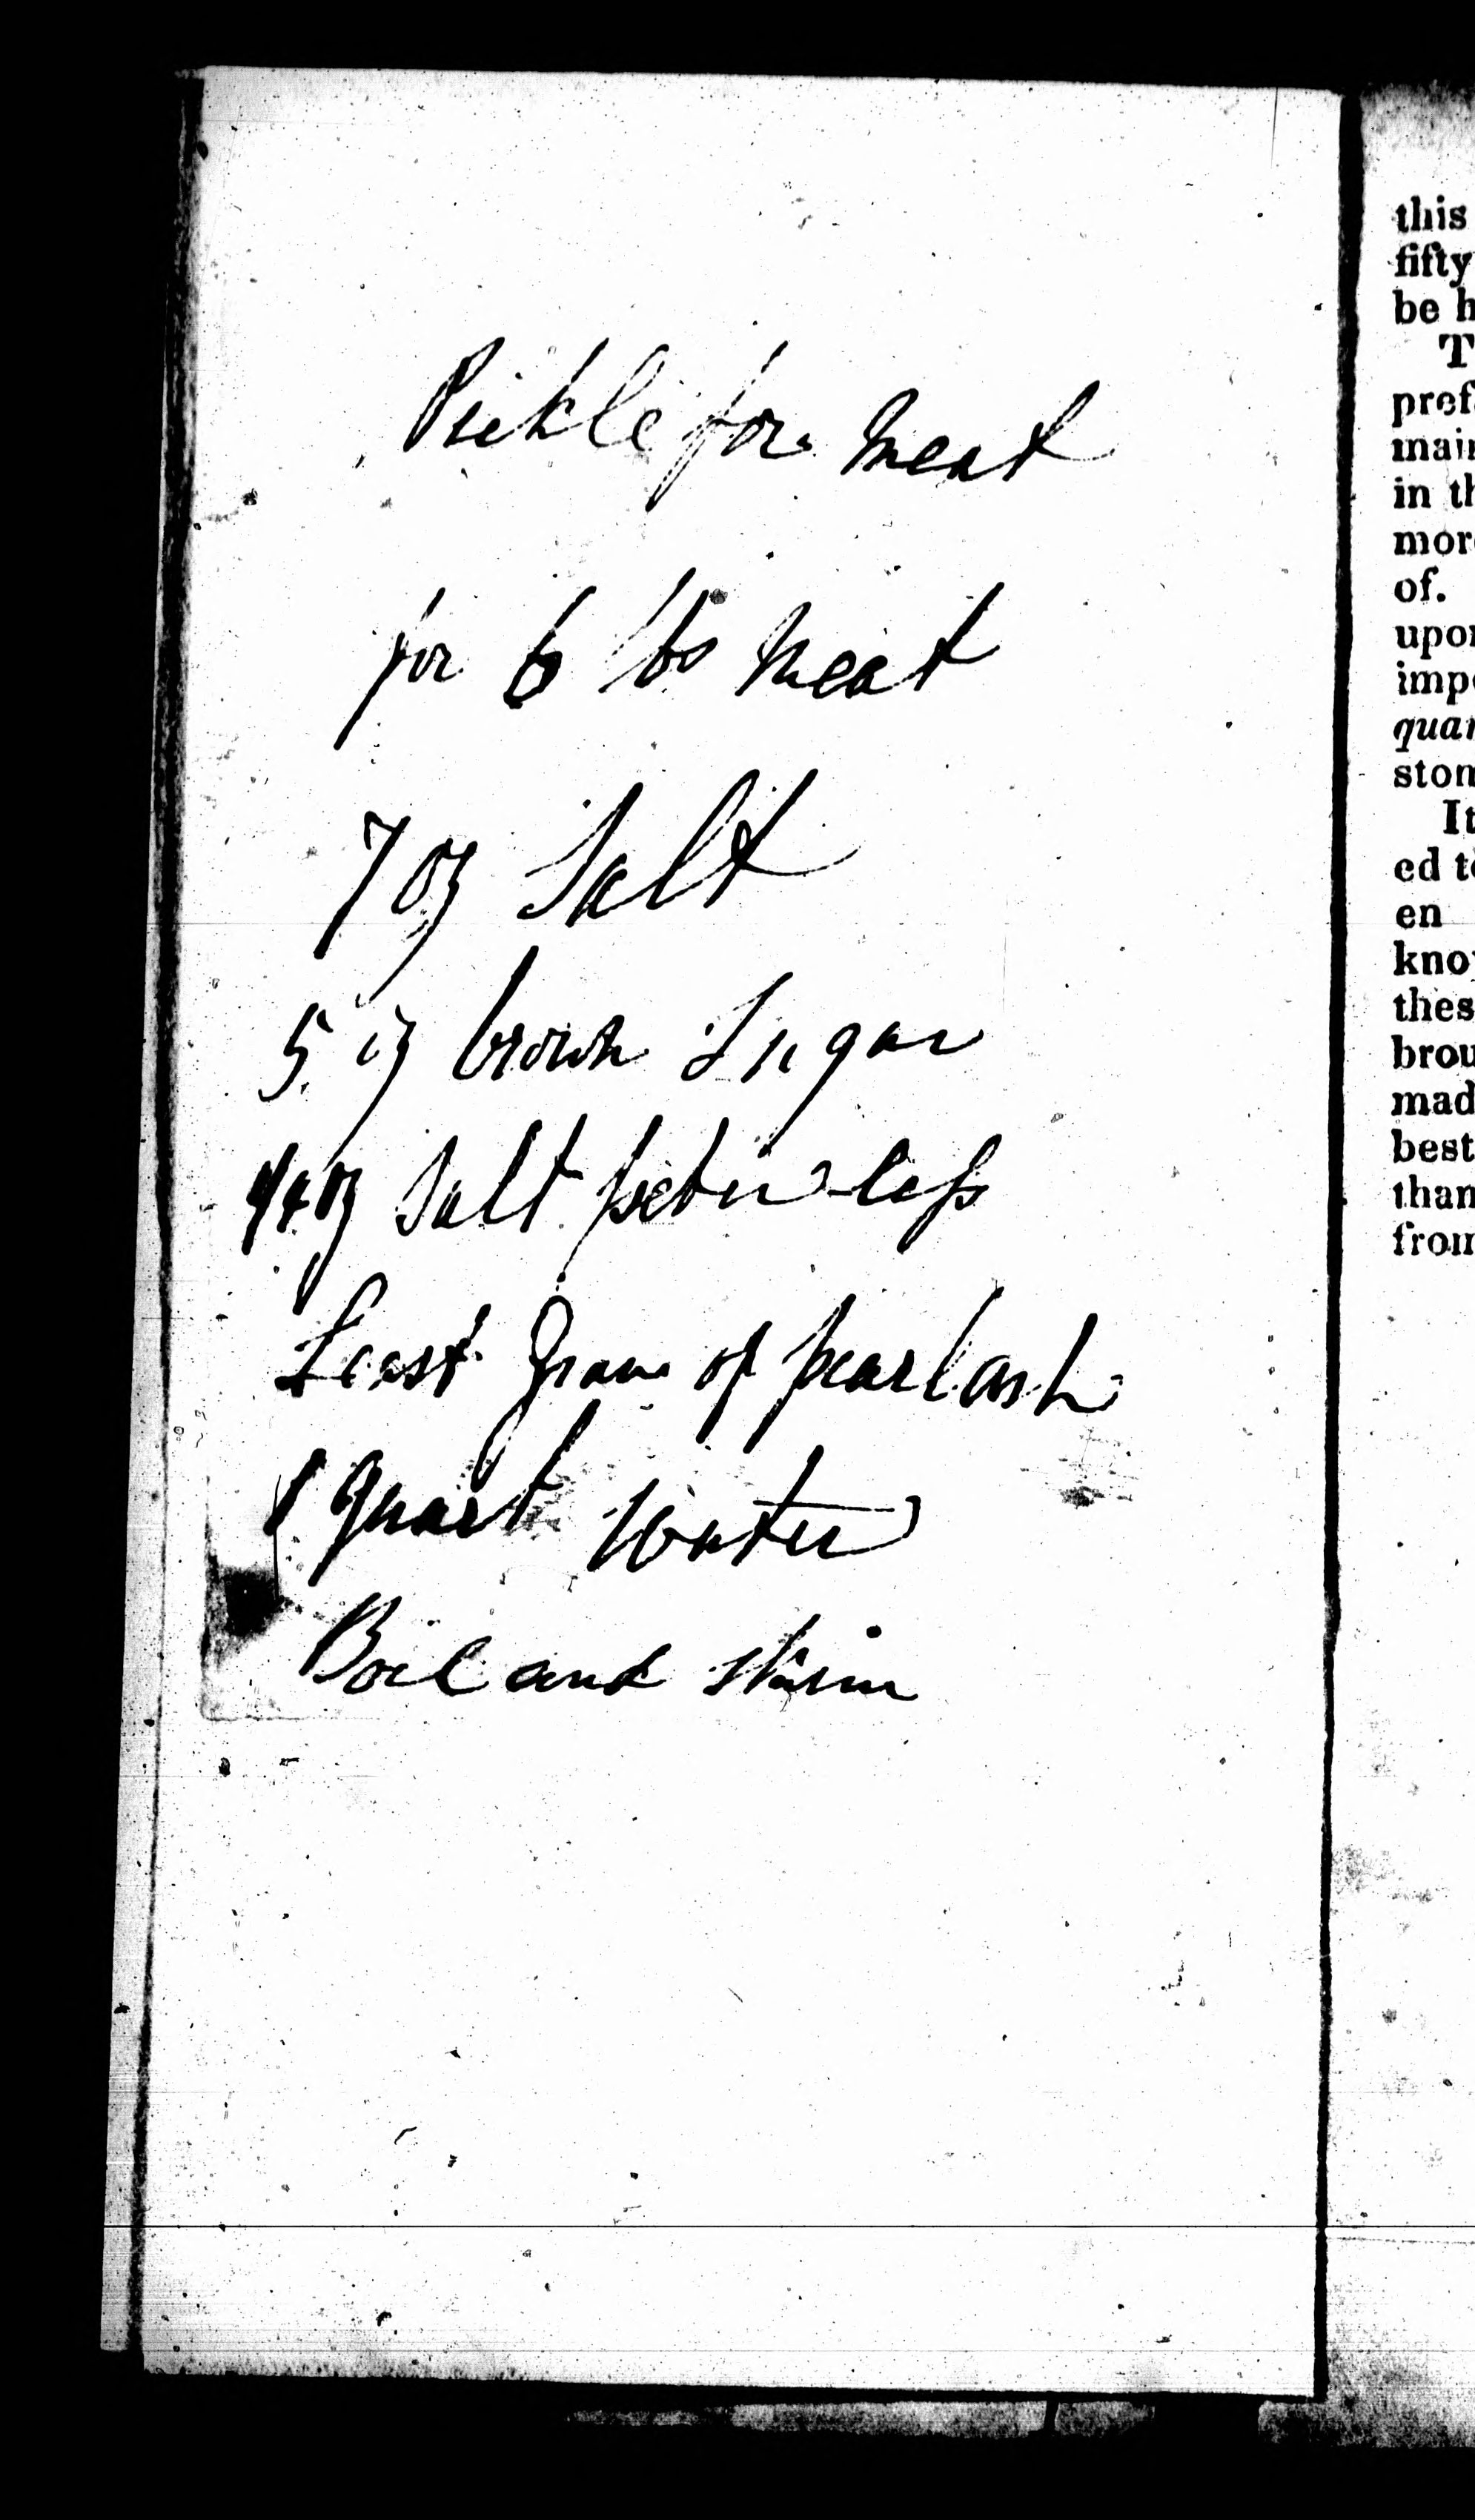 Pickle for meat
for 6 lbs meat
7 oz Salt
5 oz brown Sugar
1/4 oz Salt peter less
Least Grain of pearlash
1 Quart Water
Boil and skim
this
fifty
be h
T
pref
main
in th
more
of.
upon
impo
quan
stom
It
ed to
en
know
thes
brou
mad
best
than
from